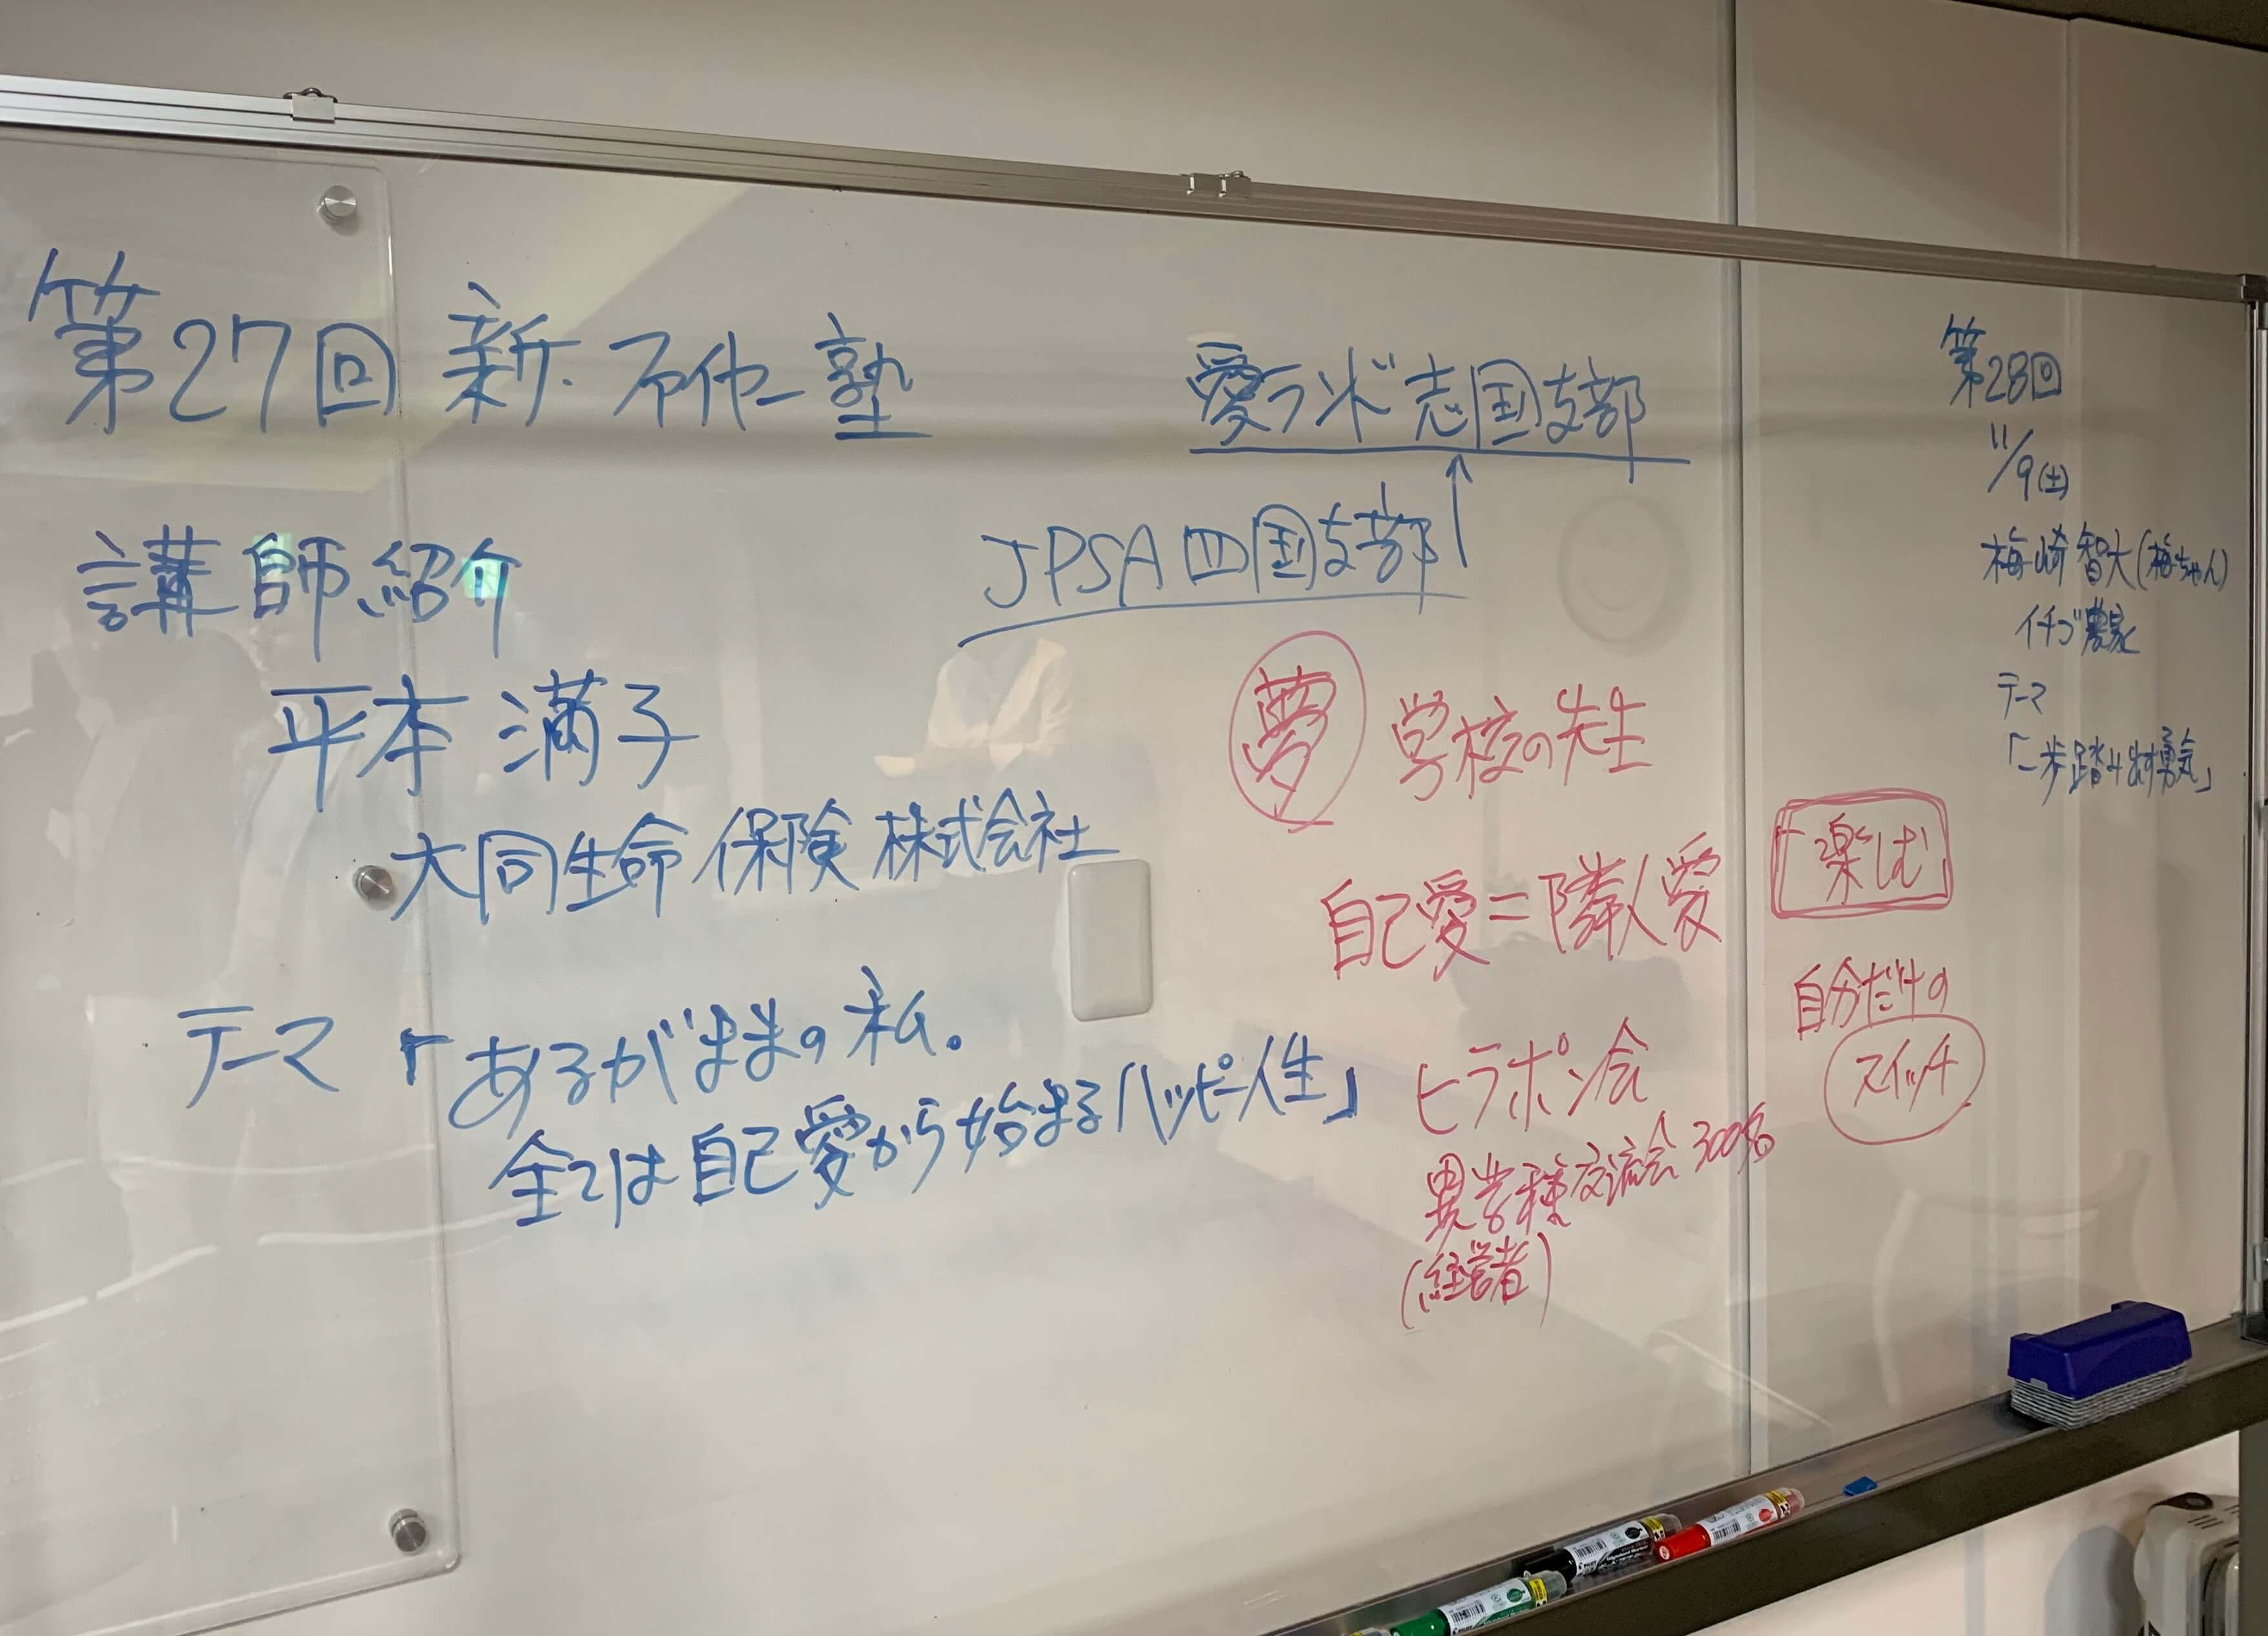 第27回 新・ファイヤー塾
講師紹介
平本 満子
大同生命保険株式会社
テーマ「あるがままの私。
全ては自己愛から始まるハッピー人生」
愛ランド志国支部
JPSA 四国支部
夢 学校の先生
自己愛=隣人愛
ヒラポン会
異業種交流会 300名
(経営者)
「楽しむ」
自分だけの
スイッチ
第28回
11/9(土)
梅崎 智大(梅ちゃん)
イチゴ農家
テーマ
「一歩踏み出す勇気」